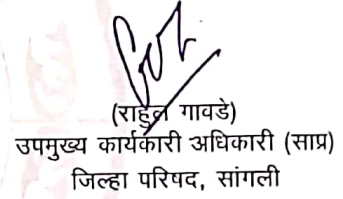 (राहुल गावडे)
उपमुख्य कार्यकारी अधिकारी (साप्र)
जिल्हा परिषद, सांगली